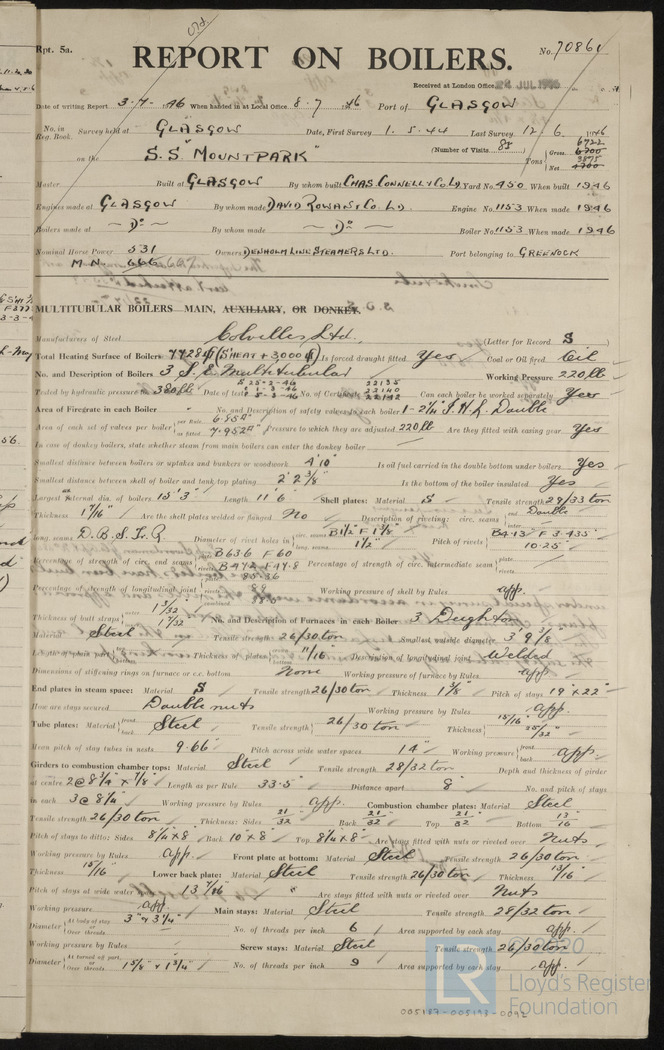 Old
Rpt. 5a.
REPORT ON BOILERS.
No. 70861
Received at London Office JUL 1946
Date of writing Report 3-7- 1946 When handed in at Local Office 8.7.46 Port of GLASGOW
No. in Reg. Book. Survey held at GLASGOW Date, First Survey 1.5.44 Last Survey 12.6. 1946
on the S.S "MOUNTPARK" (Number of Visits 88) Tons Gross 6722 6700 Net 3875 4700
Master Built at GLASGOW By whom built CHAS. CONNELL & CO LD Yard No. 450 When built 1946
Engines made at GLASGOW By whom made DAVID ROWAN & CO. LD. Engine No. 1153 When made 1946
Boilers made at — Do — By whom made — Do — Boiler No. 1153 When made 1946
Nominal Horse Power 531 Owners DENHOLM LINE STEAMERS LTD. Port belonging to GREENOCK
M.N. 666
MULTITUBULAR BOILERS MAIN, AUXILIARY, OR DONKEY.
Manufacturers of Steel Colvilles, Ltd. (Letter for Record S
Total Heating Surface of Boilers (SHEAT + 3000) Is forced draught fitted Yes Coal or Oil fired Oil
No. and Description of Boilers 3 S.E. Multitubular Working Pressure 220 lb
Tested by hydraulic pressure to 380 lb Date of test No. of Certificate 22135 22140 22142 Can each boiler be worked separately Yes
Area of Firegrate in each Boiler No. and Description of safety valves to each boiler 1 - 2¼" I.H.L. Double
Area of each set of valves per boiler per Rule 6.55" as fitted 7.952" Pressure to which they are adjusted 220 lb Are they fitted with easing gear Yes
In case of donkey boilers, state whether steam from main boilers can enter the donkey boiler
Smallest distance between boilers or uptakes and bunkers or woodwork 4' 10" Is oil fuel carried in the double bottom under boilers Yes
Smallest distance between shell of boiler and tank top plating 2' 2⅝" Is the bottom of the boiler insulated Yes
Largest internal dia. of boilers 15' 3" Length 11' 6" Shell plates: Material S Tensile strength 29/33 ton
Thickness 1 7/16" Are the shell plates welded or flanged No Description of riveting: circ. seams end Double inter.
long. seams D.B.S. Tr. R. Diameter of rivet holes in circ. seams B 1½" F 1⅜" long. seams 1½" Pitch of rivets B 4.13" F 3.435" 10.25"
Percentage of strength of circ. end seams plate B 63.6 F 60 rivets B 47.4 F 47.8 Percentage of strength of circ. intermediate seam plate rivets
Percentage of strength of longitudinal joint plate 85.36 rivets 88 combined Working pressure of shell by Rules app.
Thickness of butt straps 1 3/32" 1 7/32" No. and Description of Furnaces in each Boiler 3 Deighton
Material Steel Tensile strength 26/30 ton Smallest outside diameter 3' 9⅜"
Thickness of plates 11/16" Description of longitudinal joint Welded
Dimensions of stiffening rings on furnace or c.c. bottom None Working pressure of furnace by Rules app
End plates in steam space: Material S Tensile strength 26/30 ton Thickness 1⅜" Pitch of stays 19" x 22"
How are stays secured Double nuts Working pressure by Rules app.
Tube plates: Material front back Steel Tensile strength 26/30 ton Thickness 15/16" 25/32"
Mean pitch of stay tubes in nests 9.66" Pitch across wide water spaces 14" Working pressure front back app.
Girders to combustion chamber tops: Material Steel Tensile strength 28/32 ton Depth and thickness of girder
at centre 2 @ 8¾" x ⅞" Length as per Rule 33.5" Distance apart 8" No. and pitch of stays
in each 3 @ 8¼" Working pressure by Rules app. Combustion chamber plates: Material Steel
Tensile strength 26/30 ton Thickness: Sides 21/32 Back 21/32 Top 21/32 Bottom 13/16
Pitch of stays to ditto: Sides 8¼" x 8" Back 10" x 8" Top 8¼" x 8" Are stays fitted with nuts or riveted over Nuts
Working pressure by Rules app. Front plate at bottom: Material Steel Tensile strength 26/30 ton
Thickness 15/16" Lower back plate: Material Steel Tensile strength 26/30 ton Thickness 13/16"
Pitch of stays at wide water 13 7/16" Are stays fitted with nuts or riveted over Nuts
Working pressure app. Main stays: Material Steel Tensile strength 28/32 ton
Diameter At body of stay or Over threads 3" & 3¼" No. of threads per inch 6 Area supported by each stay app.
Working pressure by Rules Screw stays: Material Steel Tensile strength 26/30 ton
Diameter At turned off part, or Over threads 1⅝" & 1¾" No. of threads per inch 9 Area supported by each stay app.
LR 2020
Lloyd's Register
Foundation
005187-005193-0092